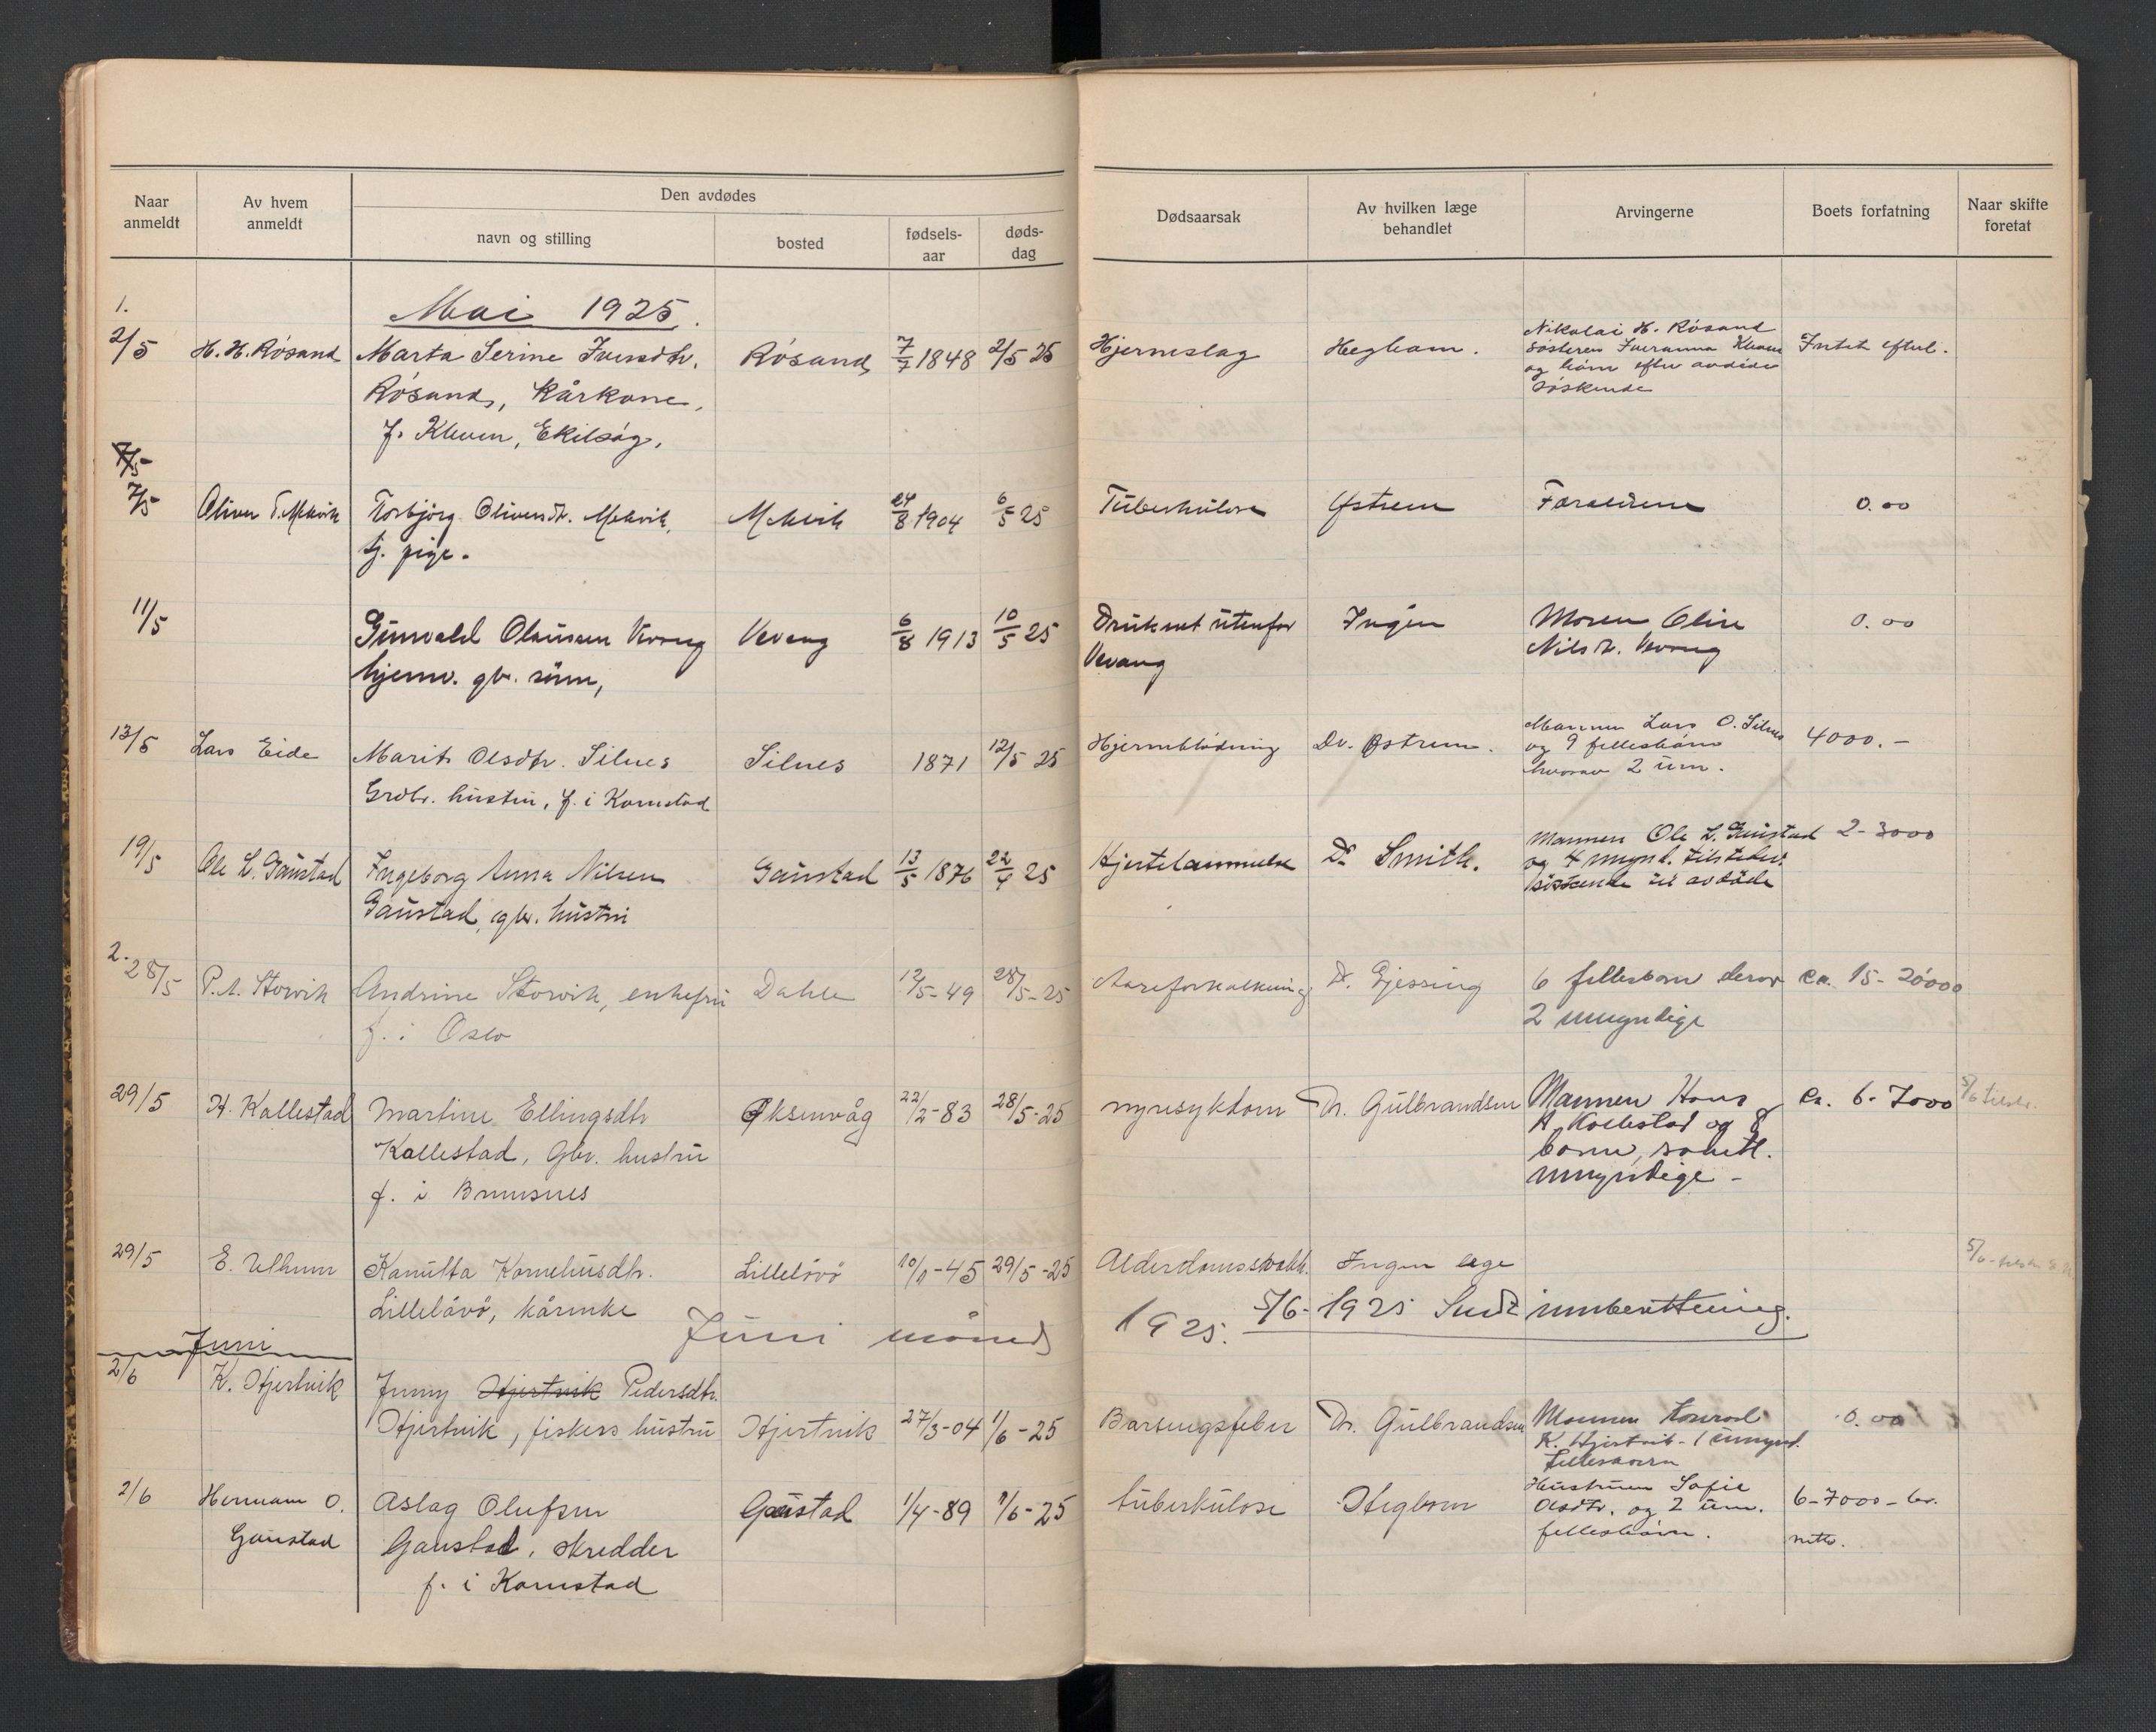 Naar anmeldt
Av hvem anmeldt
Den avdødes
navn og stilling
bosted
fødsels-aar
døds-dag
Dødsaarsak
Av hvilken læge behandlet
Arvingerne
Boets forfatning
Naar skifte foretat
1.
Mai 1925.
2/5 H. H. Rösand Marta Serine Iversdtr. Rösand 7/7 1848 2/5 25 Hjerneslag Hegbom. Nikolai H. Rösand Intet efterl.
Rösand, Kårkone, sösteren
f. Kleven, Ekilsög. og börn efter avdöde
söskende
7/5
7/5 Oliver T. Mekvik Torbjörg Oliversdtr. Mekvik, Mekvik 24/8 1904 6/5 25 Tuberkulose Östrem Foreldrene 0.00
tj. pige.
11/5 Gunvald Olaussen Vevang Vevang 6/8 1913 10/5 25 Druknet utenfor Ingen Moren Oline 0.00
hjemv. gbr. sönn, Vevang Nilsdtr. Vevang
13/5 Lars Eide Marit Olsdtr. Silnes Silnes 1871 12/5 25 Hjerneblödning Dr. Östrem. Mannen Lars O. Silnes 4000.-
Grdbr. hustru, f. i Kornstad og 9 fellesbörn
hvorav 2 um.
19/5 Ole L. Gaustad Ingeborg Anna Nilsen Gaustad 13/5 1876 22/4 25 Hjertelammelse Dr Smith. Mannen Ole L. Gaustad 2-3000
Gaustad, gbr. hustru og 4 mynd. tilstedev.
söskende til avdöde
2.
28/5 P. A. Storvik Andrine Storvik, enkefru Dahle 12/5-49 28/5-25 Aareforkalkning Dr. Gjessing 6 fellesbarn derav ca. 15-20000
f. i Oslo 2 umyndige
29/5 H. Kallestad Martine Ellingsdtr Öksenvåg 22/2-83 28/5-25 nyresykdom Dr. Gulbrandsen Mannen Hans ca. 6-7000 5/6
Kallestad, Gbr. hustru A. Kallestad og 8
f. i Bremsnes barn, samtl.
umyndige -
29/5 E. Ulhum Kanutta Korneliusdtr. Lillelövö 10/1-45 29/5-25 Alderdomssvakh. Ingen læge 5/6
Lillelövö, kårenke
5/6-1925 Sendt innberettning.
Juni
Juni måned 1925.
2/6 K. Hjertvik Jenny Hjertvik Pedersdtr.
Hjertvik, fiskers hustru Hjertvik 27/3-04 1/6-25 Barselsfeber Dr. Gulbrandsen Mannen Konrad 0.00
K. Hjertvik - 1 umynd.
fellesbarn
2/6 Hermann O. Aslag Olufsen Gaustad 1/4-89 1/6-25 tuberkulose Hegbom Hustruen Sofie 6-7000-kr.
Gaustad Gaustad, skredder Olsdtr. og 2 um. netto.
f. i Kornstad fellesbörn.